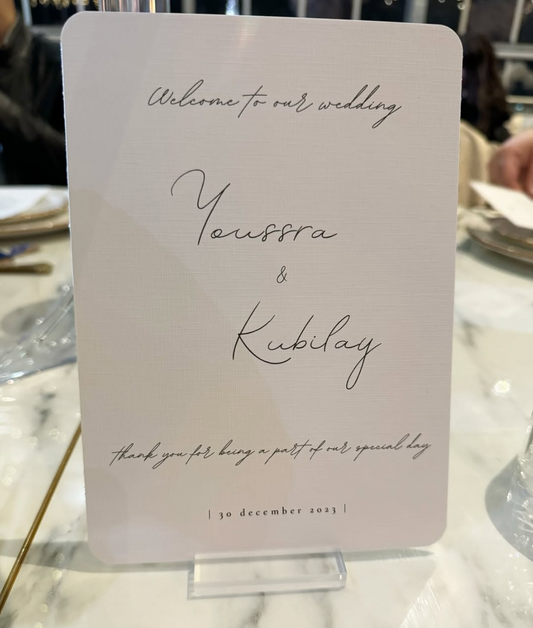 Welcome to our wedding
Youssra
&
Kubilay
thank you for being a part of our special day
| 30 december 2023 |